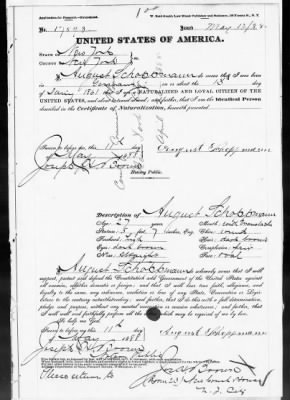 Application for Passport—Naturalized.
No. 17823 Issued May 12/88
UNITED STATES OF AMERICA.
STATE OF New York
COUNTY OF New York
I, August Schoppmann do swear that I was born
in Germany on the 13 day
of June 1861 that I am a NATURALIZED AND LOYAL CITIZEN OF THE
UNITED STATES, and about to travel abroad; and further, that I am the Identical Person
described in the Certificate of Naturalization, herewith presented.
Sworn to before me this 11th day
of May 1888
August Schoppmann
Joseph B. Brown
Notary Public.
Description of August Schoppmann
Age: 27 years Mouth:
Stature: 5 feet 7 inches, Eng. Chin: round
Forehead: high Hair: dark brown
Eyes: dark brown Complexion: fair
Nose: straight Face: oval
I, August Schoppmann do solemnly swear that I will
support, protect and defend the Constitution and Government of the United States against
all enemies, whether domestic or foreign; and that I will bear true faith, allegiance, and
loyalty to the same, any ordinance, resolution or law of any State, Convention or Legis-
lature to the contrary notwithstanding; and further, that I do this with a full determination,
pledge and purpose, without any mental reservation or evasion whatsoever; and further, that
I will well and faithfully perform all the duties which may be required of me by law.
So help me God.
Sworn to before me this 11th day
of May 1888
August Schoppmann
Joseph B. Brown
Notary Public
Please return to
N. Y. City